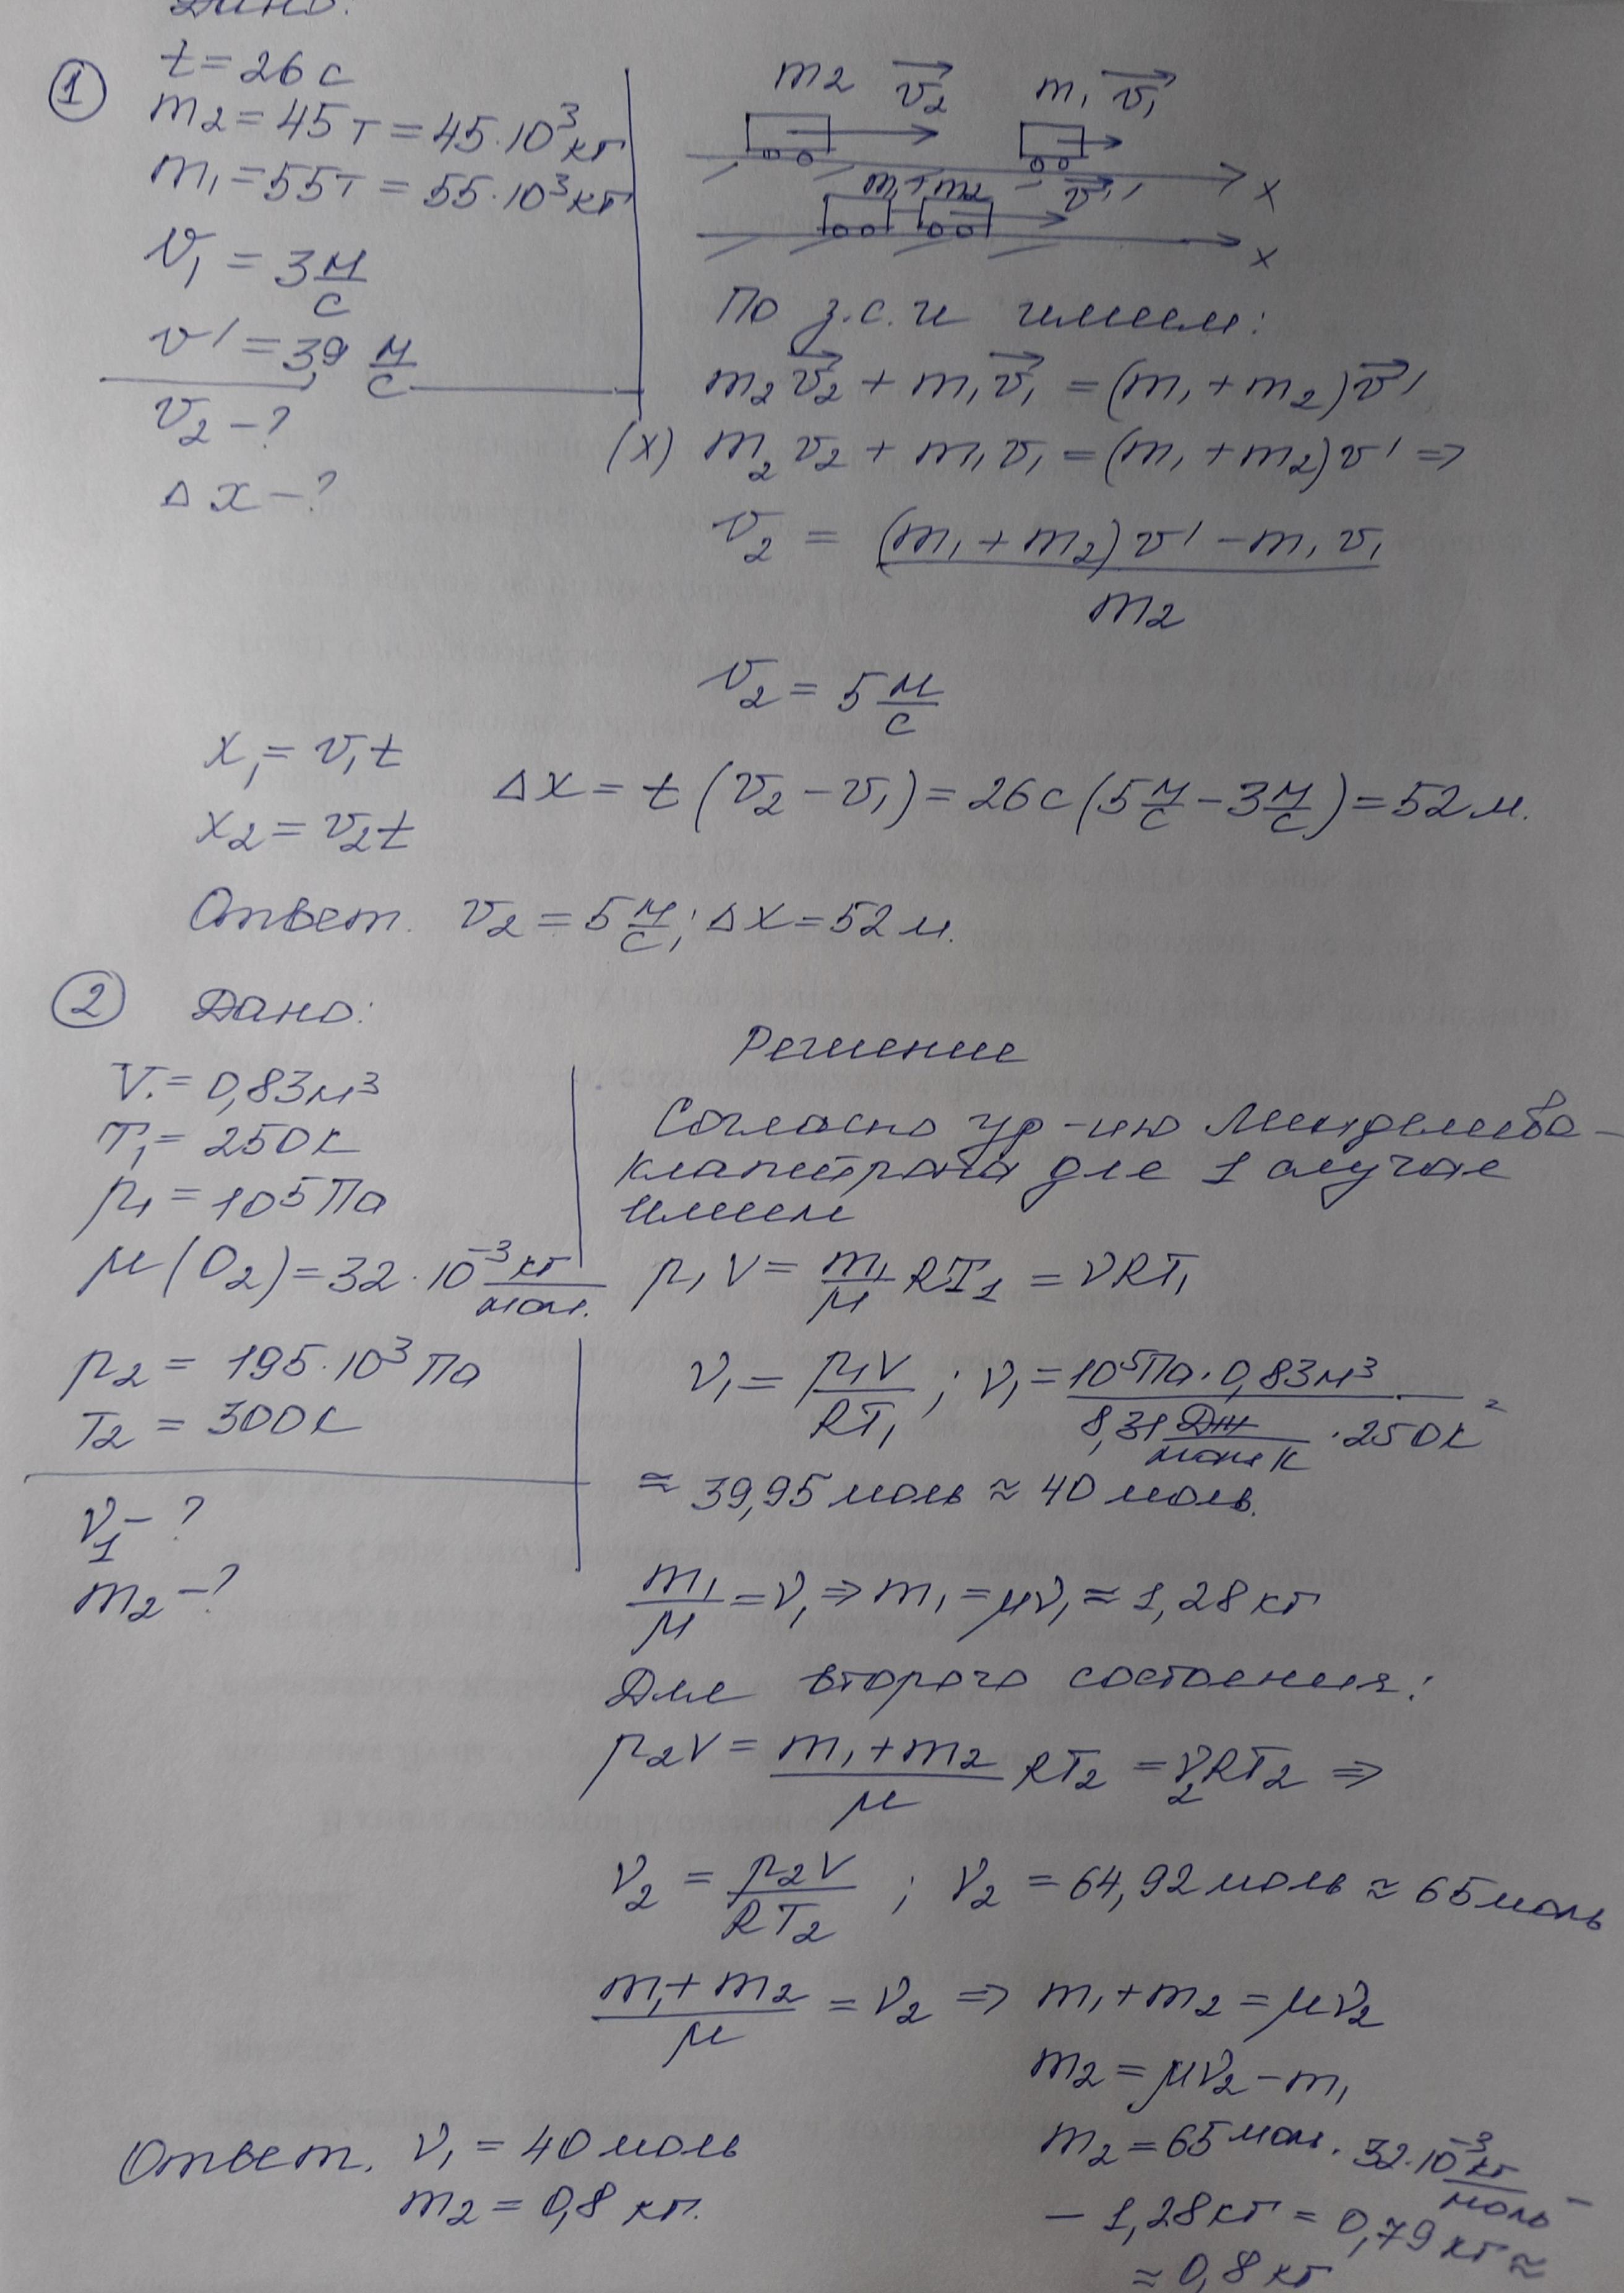 Дано:
①
t = 26 с
m₂ = 45 т = 45·10³ кг
m₁ = 55 т = 55·10³ кг
v₁ = 3 м/с
v' = 3,9 м/с
v₂ – ?
Δx – ?
m₂ v₂ m₁ v₁
x
m₁+m₂ v'
x
По з.с.и имеем:
m₂v₂ + m₁v₁ = (m₁ + m₂)v'
(x) m₂v₂ + m₁v₁ = (m₁ + m₂)v' ⇒
v₂ = ((m₁ + m₂)v' – m₁v₁)/m₂
v₂ = 5 м/с
x₁ = v₁t
x₂ = v₂t
Δx = t(v₂ – v₁) = 26с(5 м/с – 3 м/с) = 52 м.
Ответ. v₂ = 5 м/с; Δx = 52 м.
② Дано:
V = 0,83 м³
T₁ = 250К
p₁ = 10⁵ Па
μ(O₂) = 32·10⁻³ кг/мол.
p₂ = 195·10³ Па
T₂ = 300К
ν₁ – ?
m₂ – ?
Решение
Согласно ур-ию Менделеева-
Клапейрона для 1 случая
имеем
p₁V = m₁/μ RT₁ = νRT₁
ν₁ = p₁V/RT₁; ν₁ = (10⁵Па·0,83м³)/(8,31 Дж/моль К · 250К) =
≈ 39,95 моль ≈ 40 моль.
m₁/μ = ν₁ ⇒ m₁ = μν₁ ≈ 1,28 кг
Для второго состояния:
p₂V = (m₁ + m₂)/μ RT₂ = ν₂RT₂ ⇒
ν₂ = p₂V/RT₂; ν₂ = 64,92 моль ≈ 65 моль
(m₁ + m₂)/μ = ν₂ ⇒ m₁ + m₂ = μν₂
m₂ = μν₂ – m₁
m₂ = 65 мол. · 32·10⁻³ кг/моль –
– 1,28 кг = 0,79 кг ≈
≈ 0,8 кг
Ответ. ν₁ = 40 моль
m₂ = 0,8 кг.